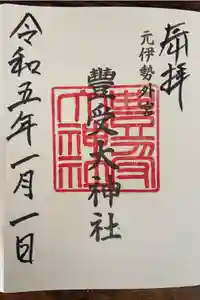 奉拝
元伊勢外宮
豊受大神社
令和五年一月一日